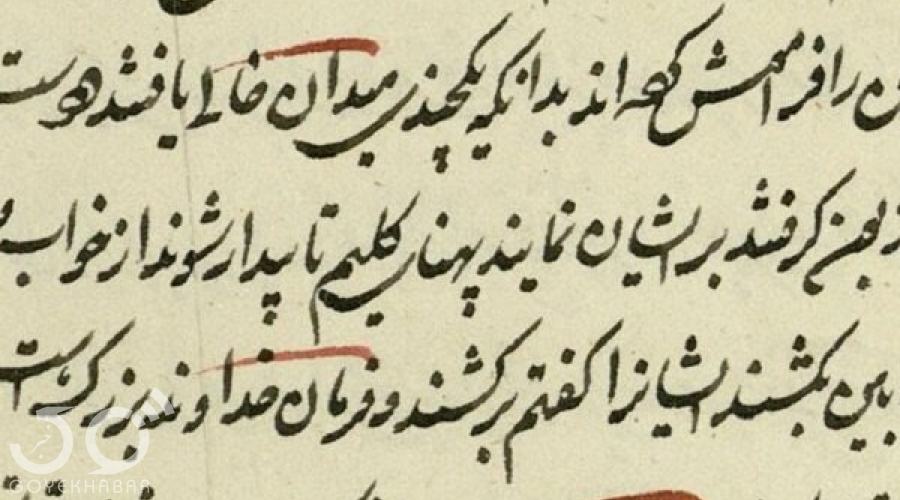 را فرامش کرده اند بدانکه یکچندی میدان خالی یافتند هوست
بهن کرفتند بر ایشان نمایند پهنای کلیم تا بیدار شوند از خواب
باین بکشند ایشانرا کفتم برکشند و فرمان خداوند بزرکتر است
GOYEKHABAR